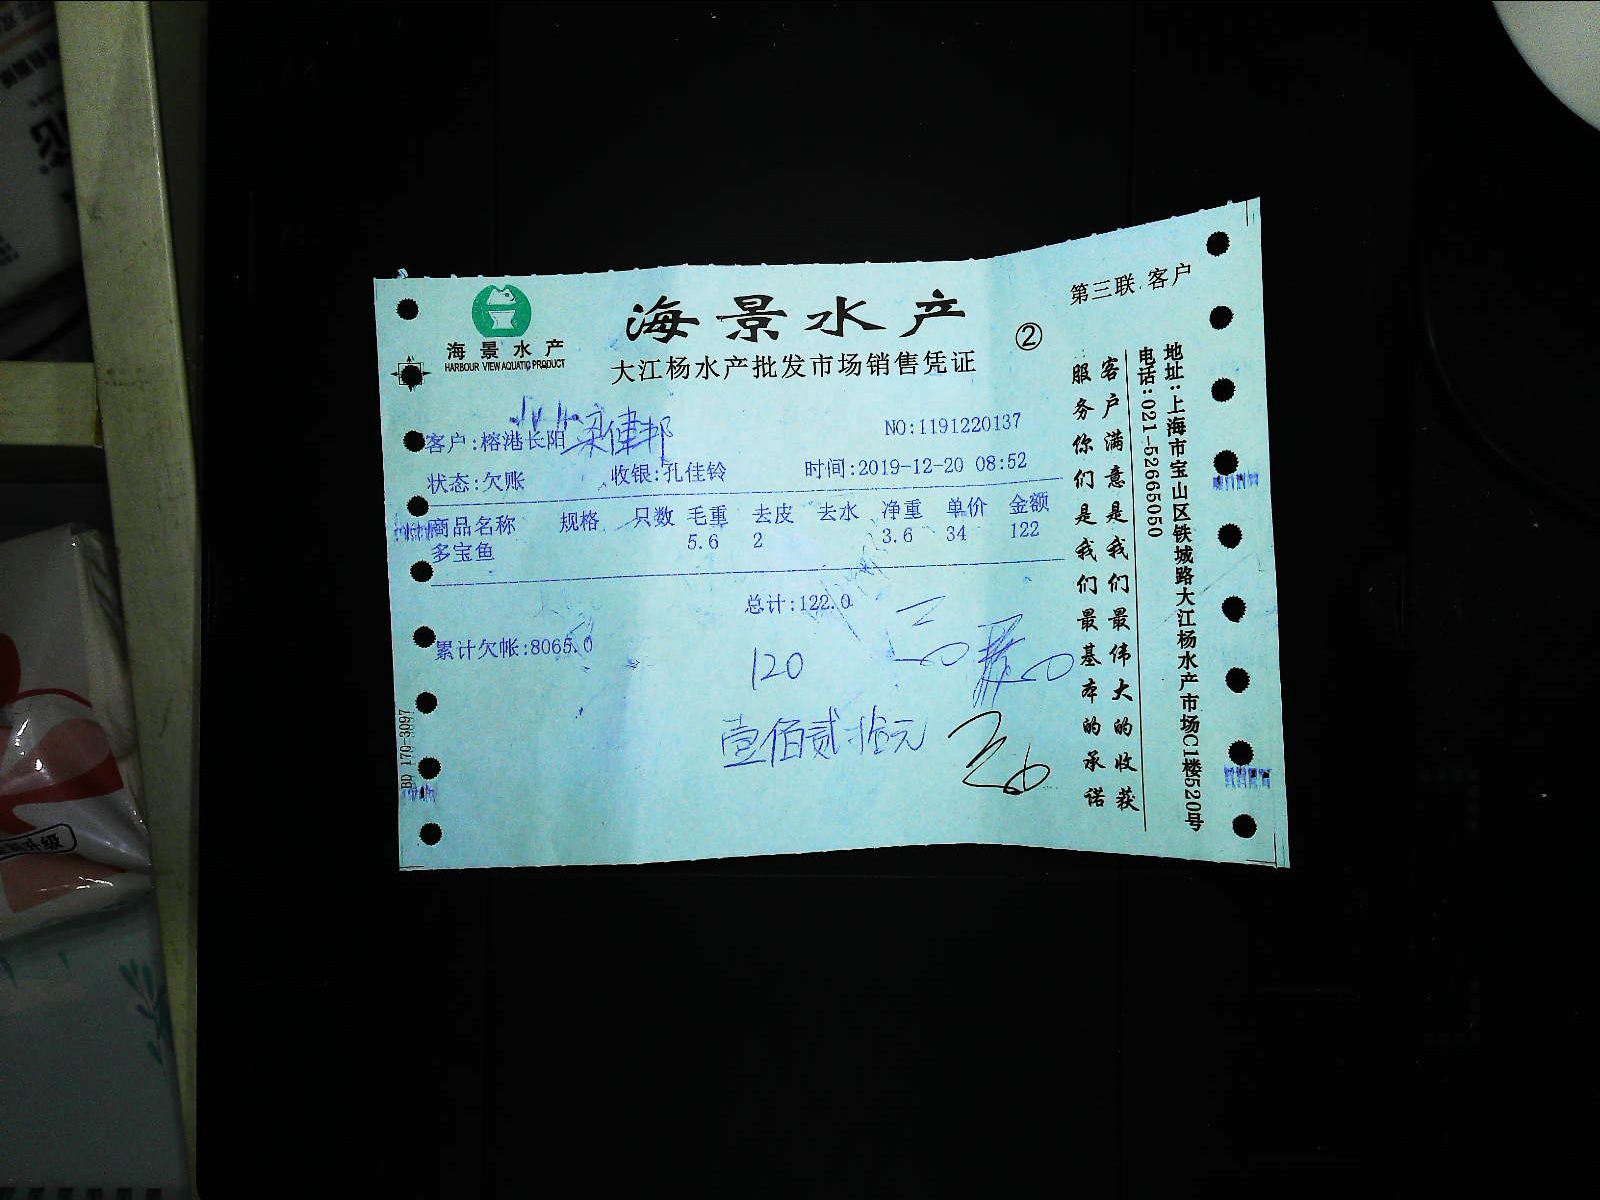 海景水产
HARBOUR VIEW AQUATIC PRODUCT
海景水产
大江杨水产批发市场销售凭证
②
第三联 客户
客户:榕港长阳
NO:1191220137
状态:欠账 收银:孔佳铃 时间:2019-12-20 08:52
商品名称 规格 只数 毛重 去皮 去水 净重 单价 金额
多宝鱼 5.6 2 3.6 34 122
总计:122.0
累计欠帐:8065.0
120
壹佰贰拾元
BD 170-3097
客户满意是我们最伟大的收获
服务你们是我们最基本的承诺
地址:上海市宝山区铁城路大江杨水产市场C1楼520号
电话:021-52665050